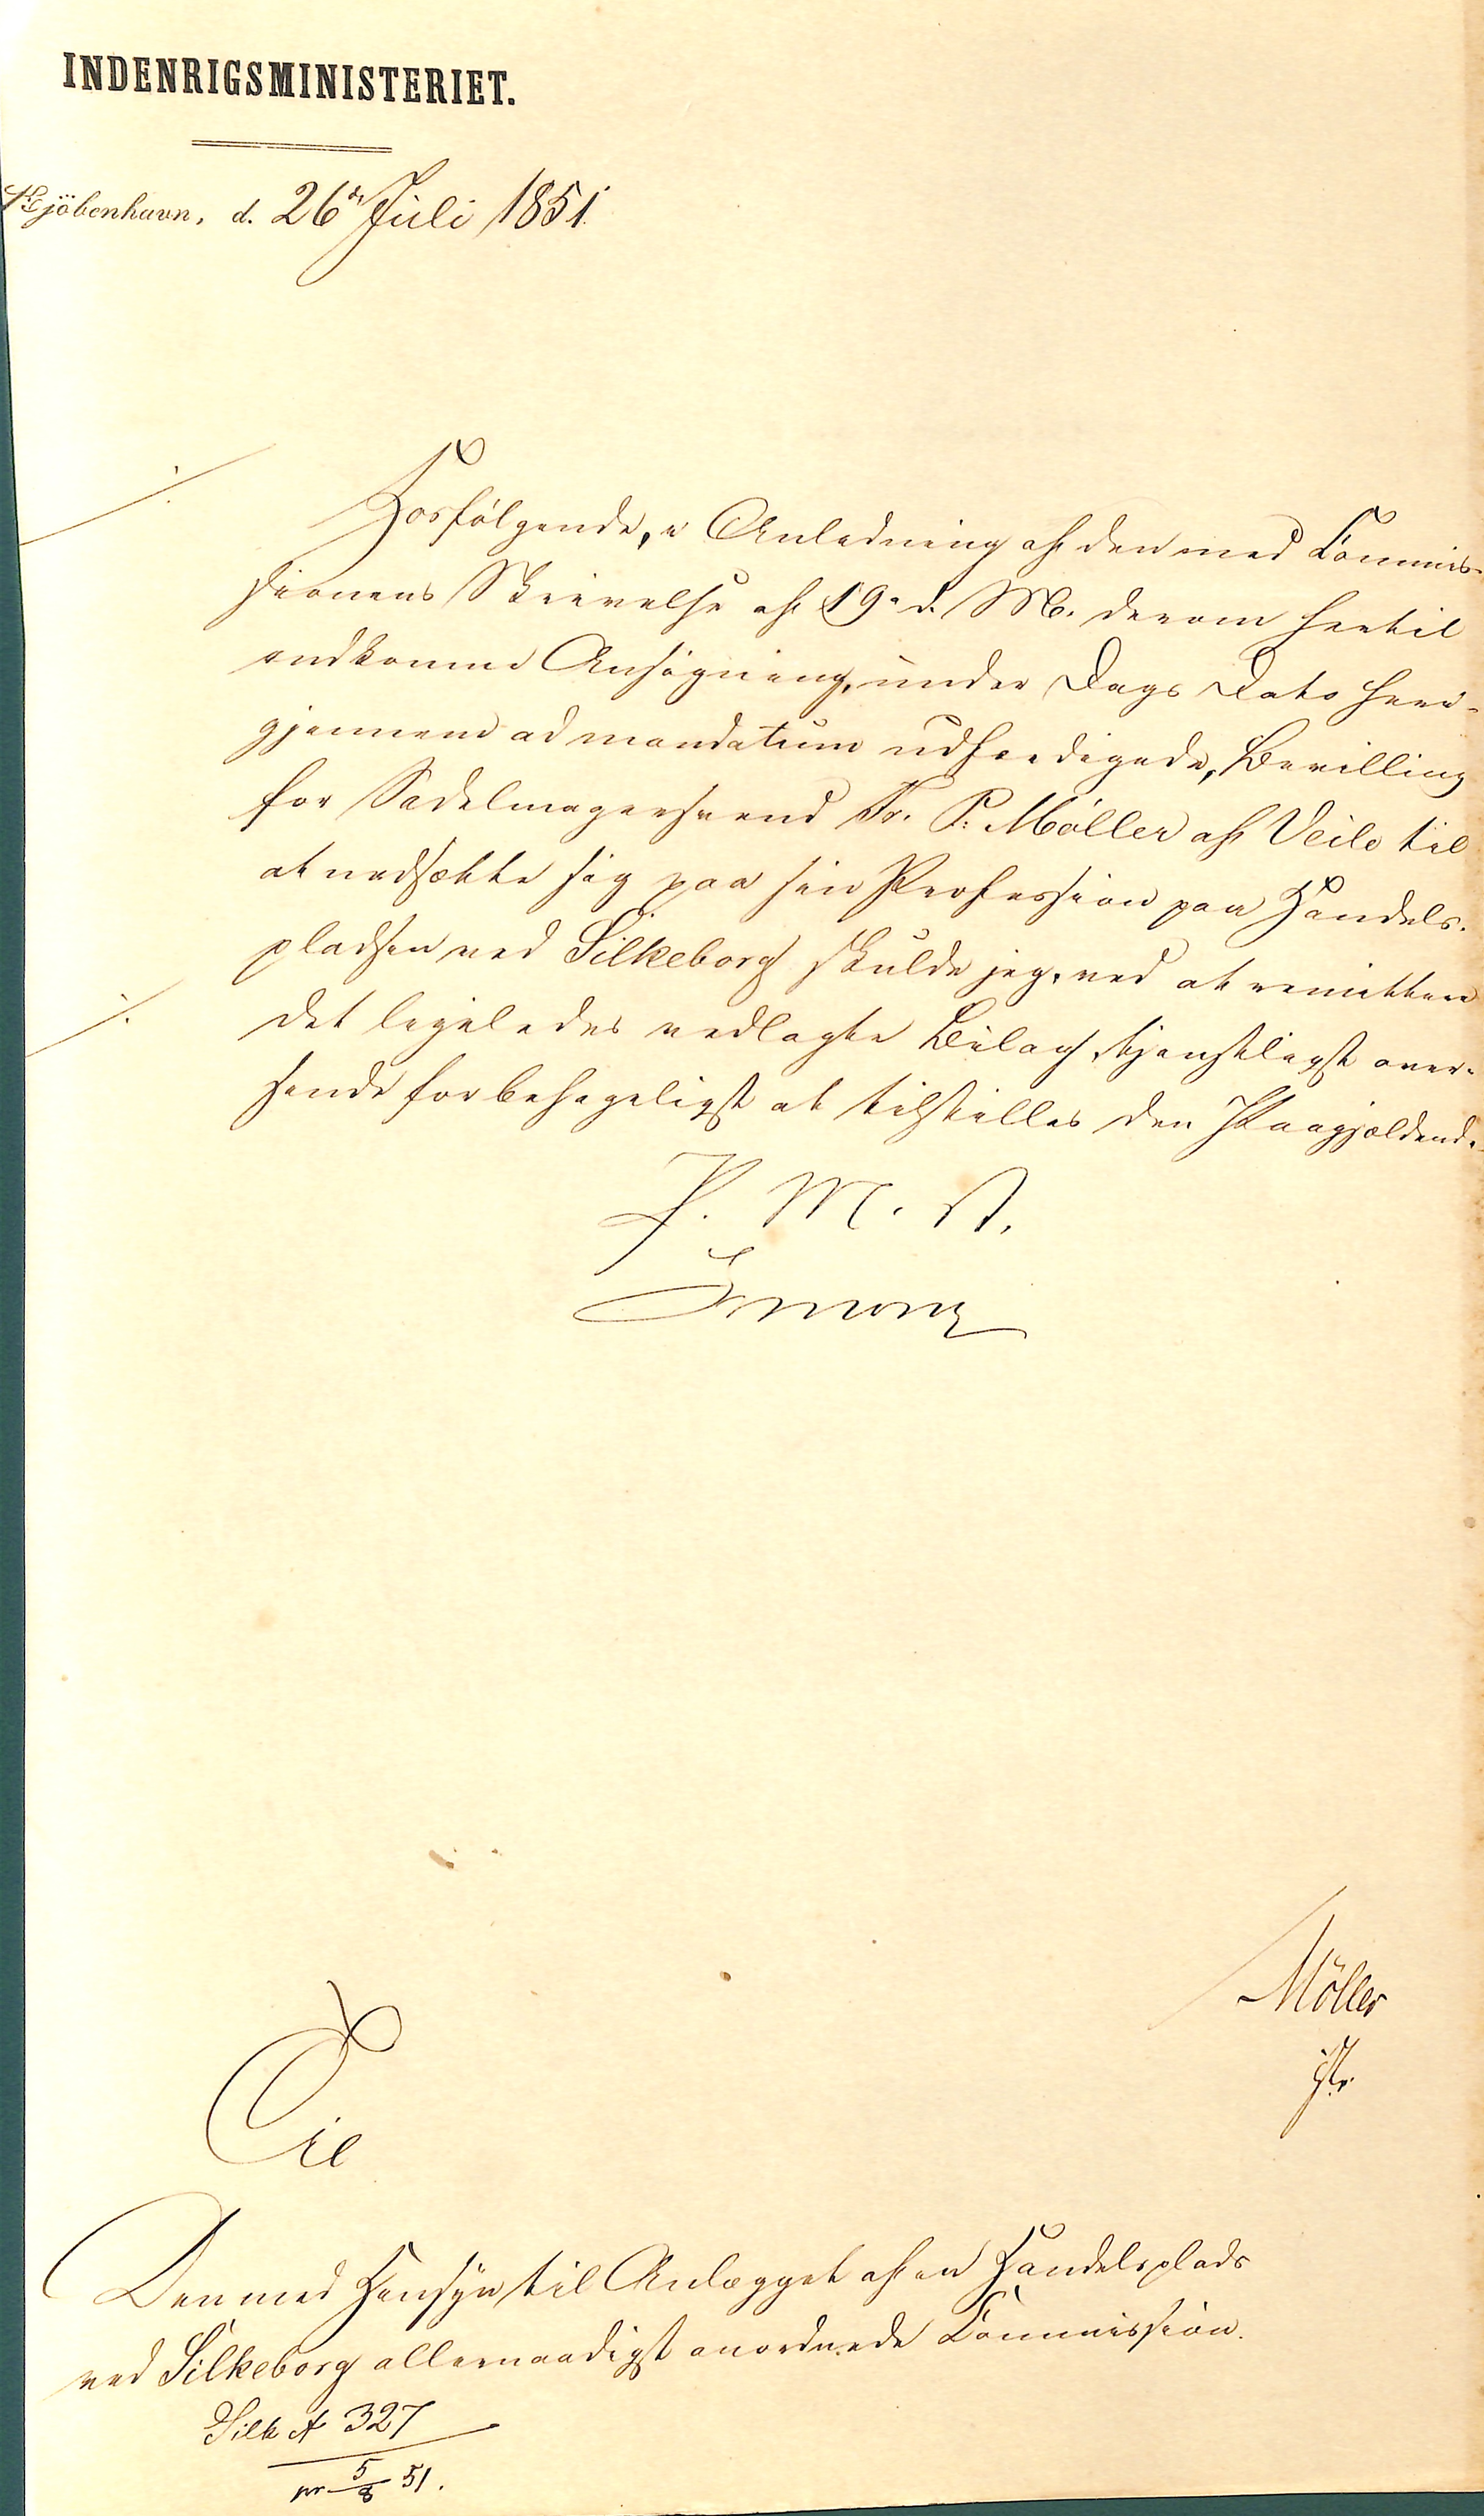 INDENRIGSMINISTERIET.
Kjöbenhavn, d. 26de Juli 1851.
./.
Hosfølgende, i Anledning af den med Commis-
sionens Skrivelse af 19. d. M. derom hertil
indkomne Ansøgning, under Dags Dato heri-
gjennem ad mandatum udfærdigede, Bevilling
for Sadelmagersvend Fr. P. Møller af Veile til
at nedsætte sig paa sin Profession paa Handels-
pladsen ved Silkeborg skulde jeg, ved at remittere
./.
det ligeledes vedlagte Bilag, tjenstligst over-
sende for behageligst at tilstilles den Paagjældende.
P. M. V.
Møller
Til
Den med Hensyn til Anlægget af en Handelsplads
ved Silkeborg allernaadigst anordnede Commission.
Silk A 327
pr 5/8 51.